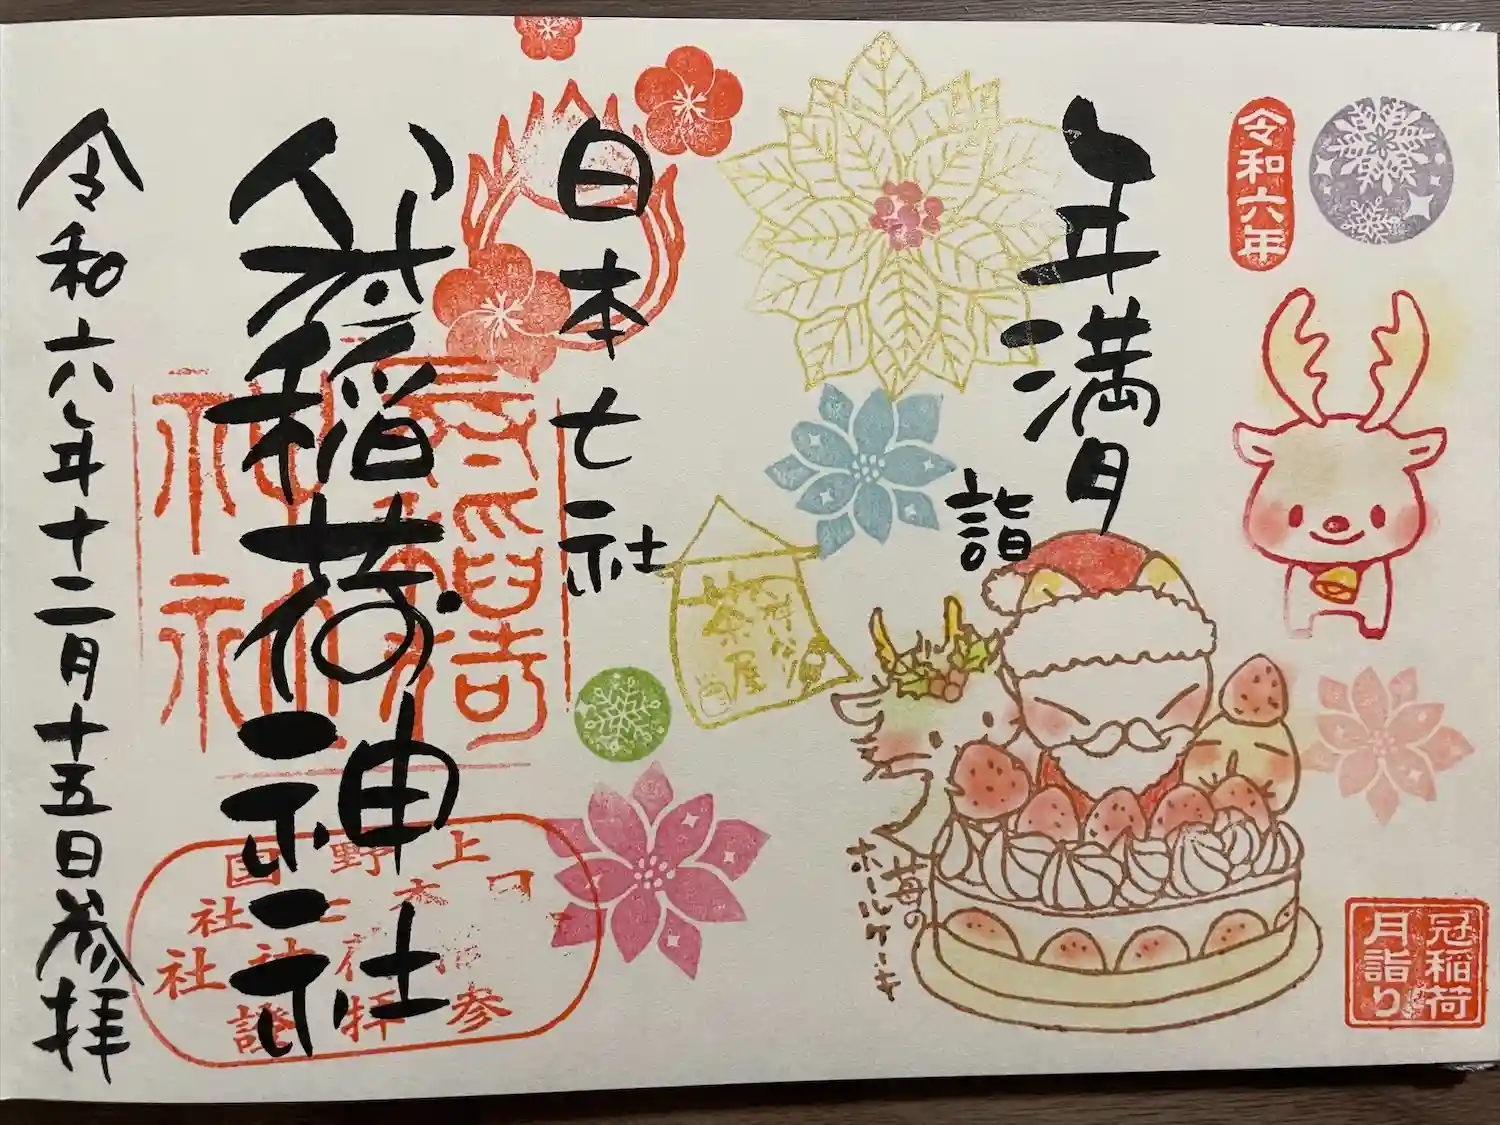 令和六年
年満月
詣
冠稲荷
月詣り
苺の
ホールケーキ
茶屋
日本七社
冠稲荷神社
上野国
参拝證
令和六年十二月十五日参拝